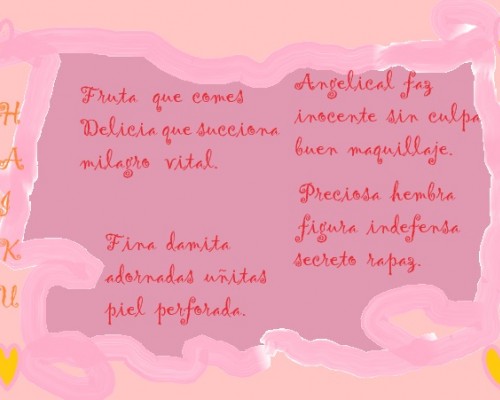 HAIKU
Fruta que comes
Delicia que succiona
milagro vital.
Fina damita
adornadas uñitas
piel perforada.
Angelical faz
inocente sin culpa
buen maquillaje.
Preciosa hembra
figura indefensa
secreto rapaz.